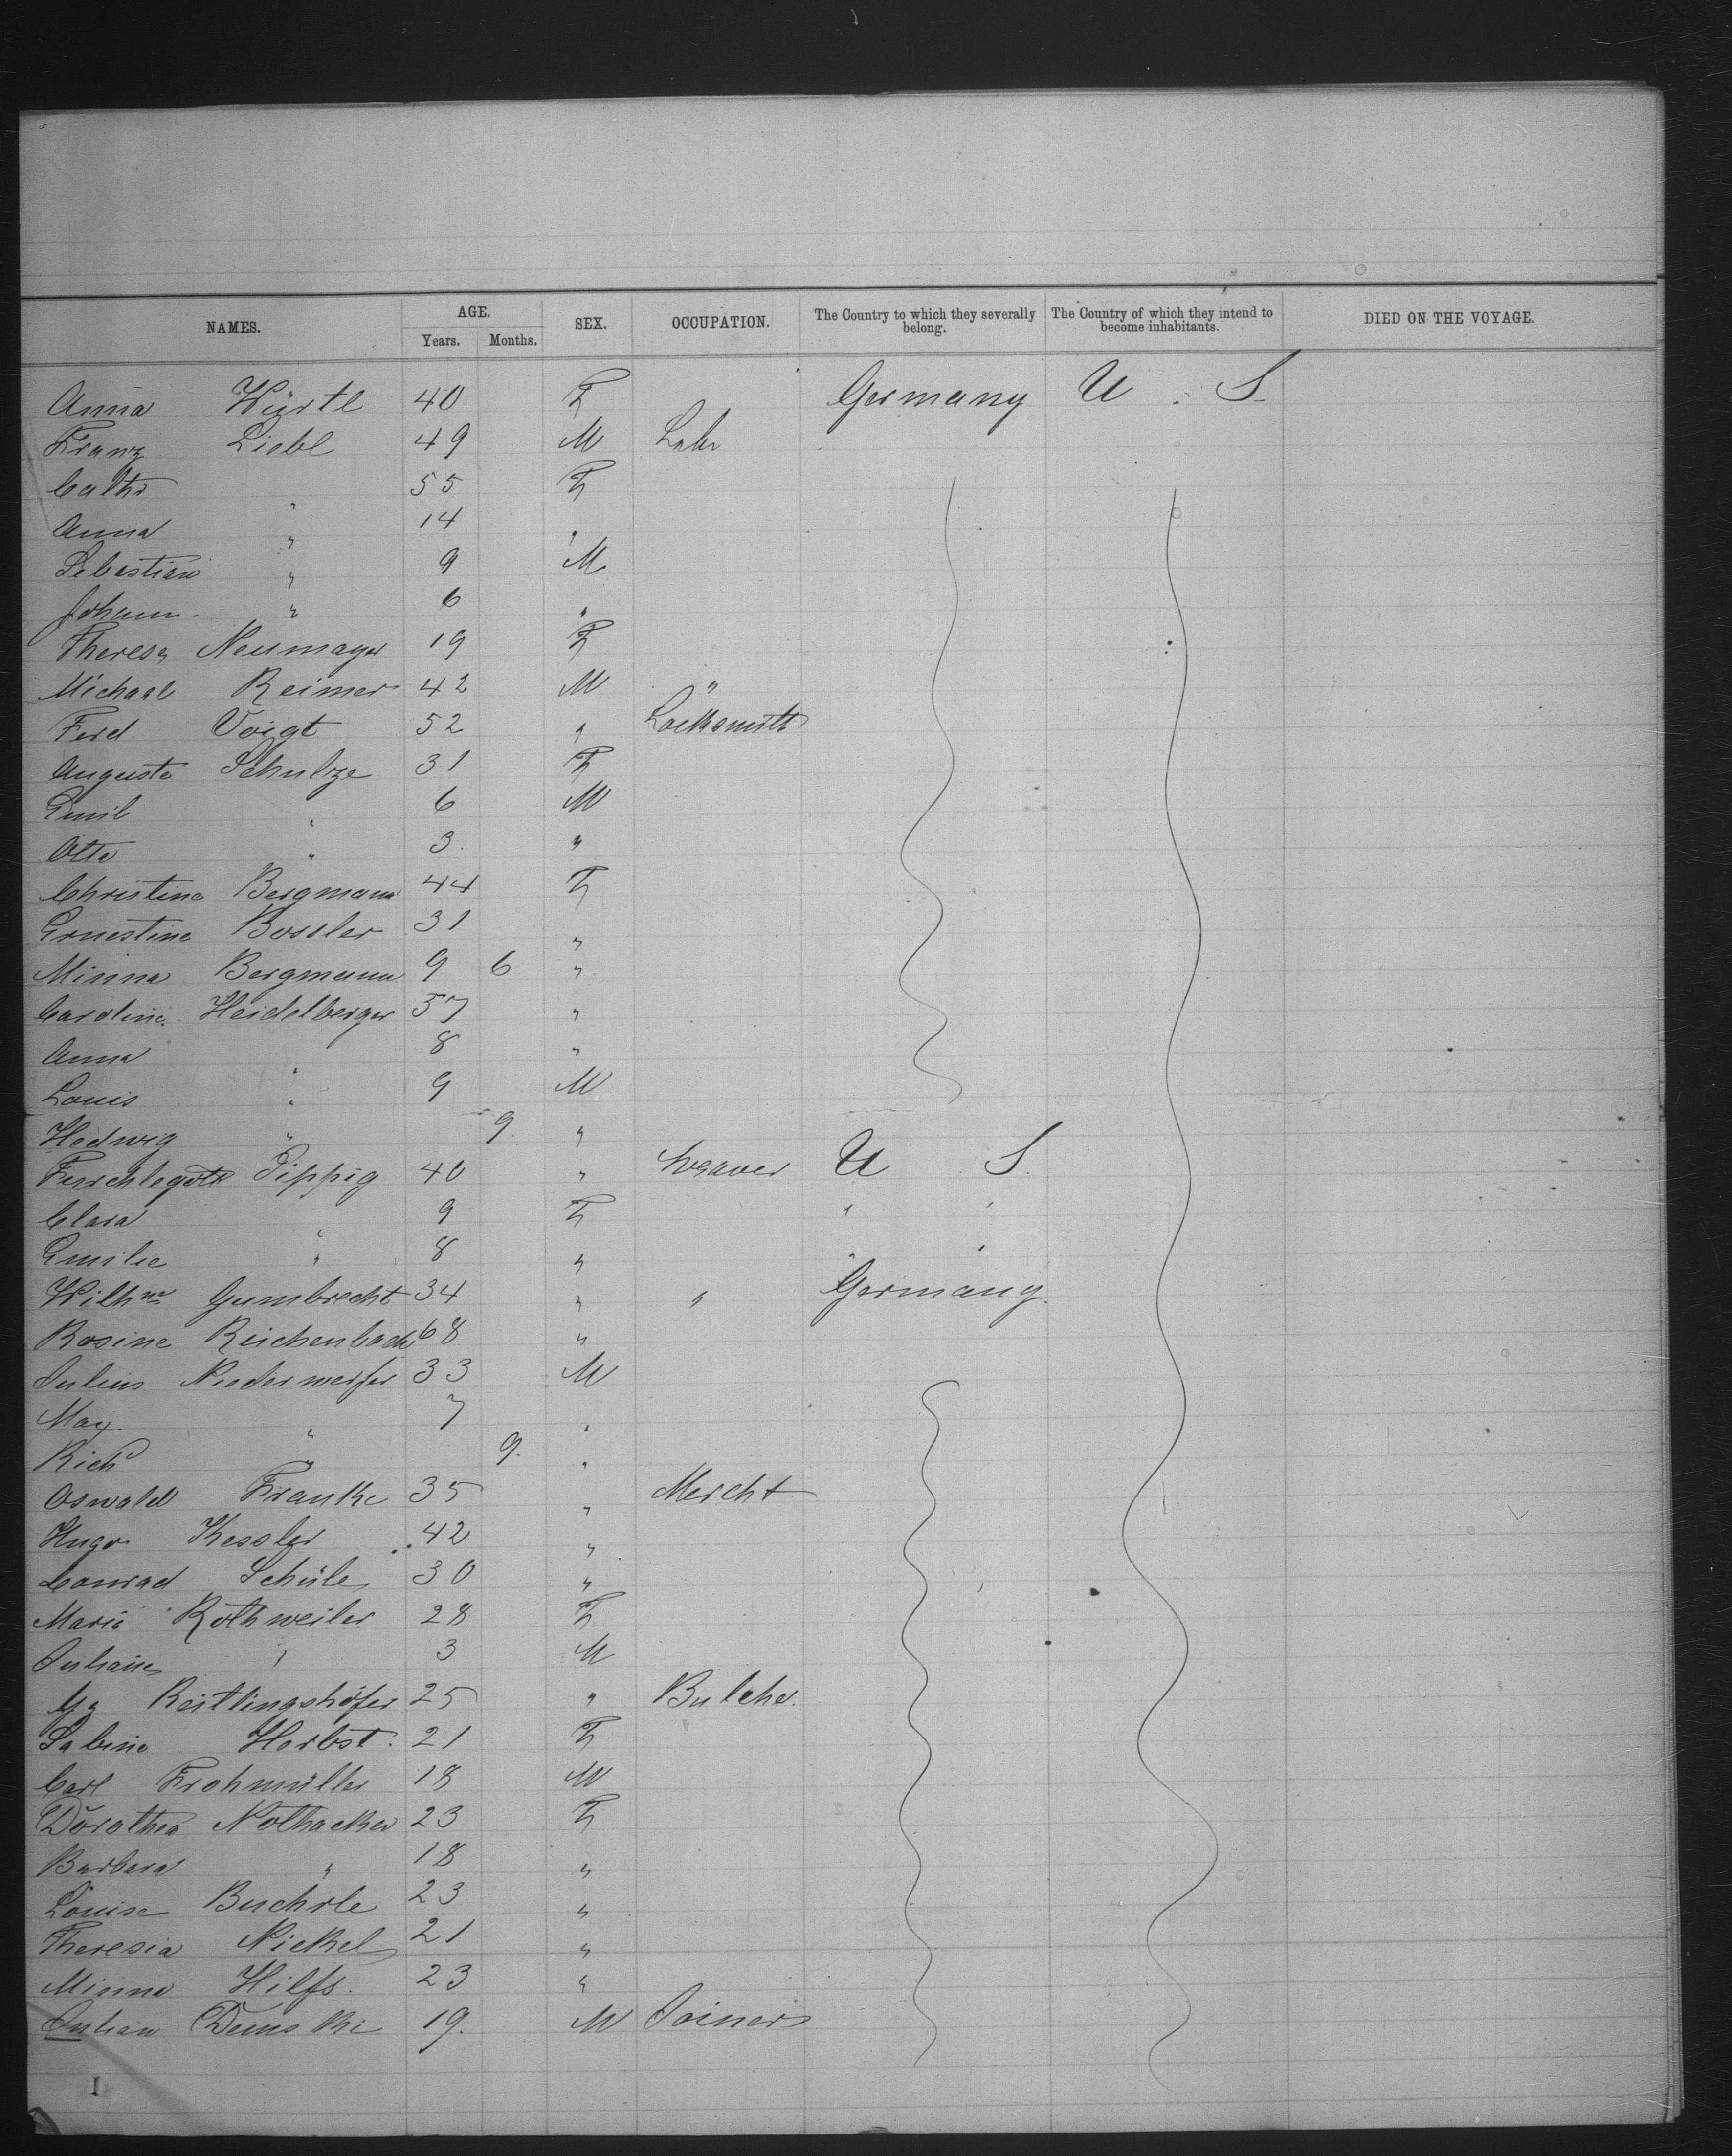 NAMES. AGE. SEX. OCCUPATION. The Country to which they severally belong. The Country of which they intend to become inhabitants. DIED ON THE VOYAGE.
Years. Months.
Anna Würtl 40 F Germany U. S.
Franz Liebl 49 M Labr
Cathr " 55 F
Anna " 14 "
Sebastian " 9 M
Johann " 6 "
Theresa Neumayer 19 F
Michael Reimer 42 M "
Ferd Voigt 52 " Locksmith
Auguste Schulze 31 F
Emil " 6 M
Otto " 3. "
Christine Bergmann 44 F
Ernestine Bossler 31 "
Minna Bergmann 9 6 "
Caroline Heidelberger 37 "
Anna " 8 "
Louis " 9 M
Hedwig " 9. "
Furchtegott Pippig 40 " Weaver U S.
Clara " 9 F " "
Emilie " 8 " " "
Wilhme Gumbrecht 34 " " Germany.
Rosine Reichenbach 68 "
Julius Niederwerfer 33 M
Max. " 7 "
Richd " 9. "
Oswald Franke 35 " Mercht
Hugo Kessler 42 "
Conrad Schüle 30 "
Maria Rothweiler 28 F
Julius " 3 M
Reitlingshöfer 25 " Butcher.
Sabine Herbst. 21 F
Carl Frohmüller 18 M
Dorothea Nothacker 23 F
Barbara " 18 "
Louise Buehrle 23 "
Theresia Nickel 21 "
Minna Hilfs. 23 "
Julian Demski 19. M Joiner
I